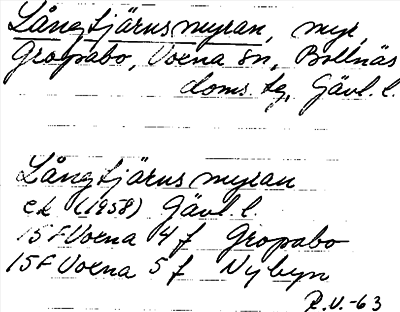 Långtjärnsmyran, myr,
Gropabo, Voxna sn, Bollnäs
doms. tg, Gävl. l.
Långtjärnsmyran
ek (1958) Gävl. l.
15F Voxna 4 f Gropabo
15F Voxna 5 f Nybyn
R.V.-63